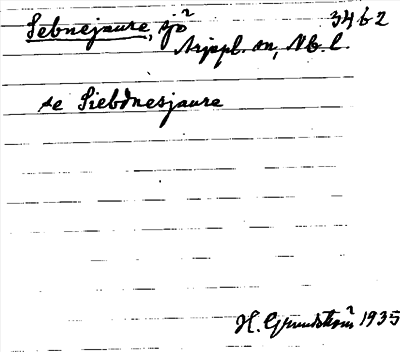 Sebnejaure, sjö 34 b 2
Arjepl. sn, Nb. l.
se Siebdnesjaure
H. Grundström 1935